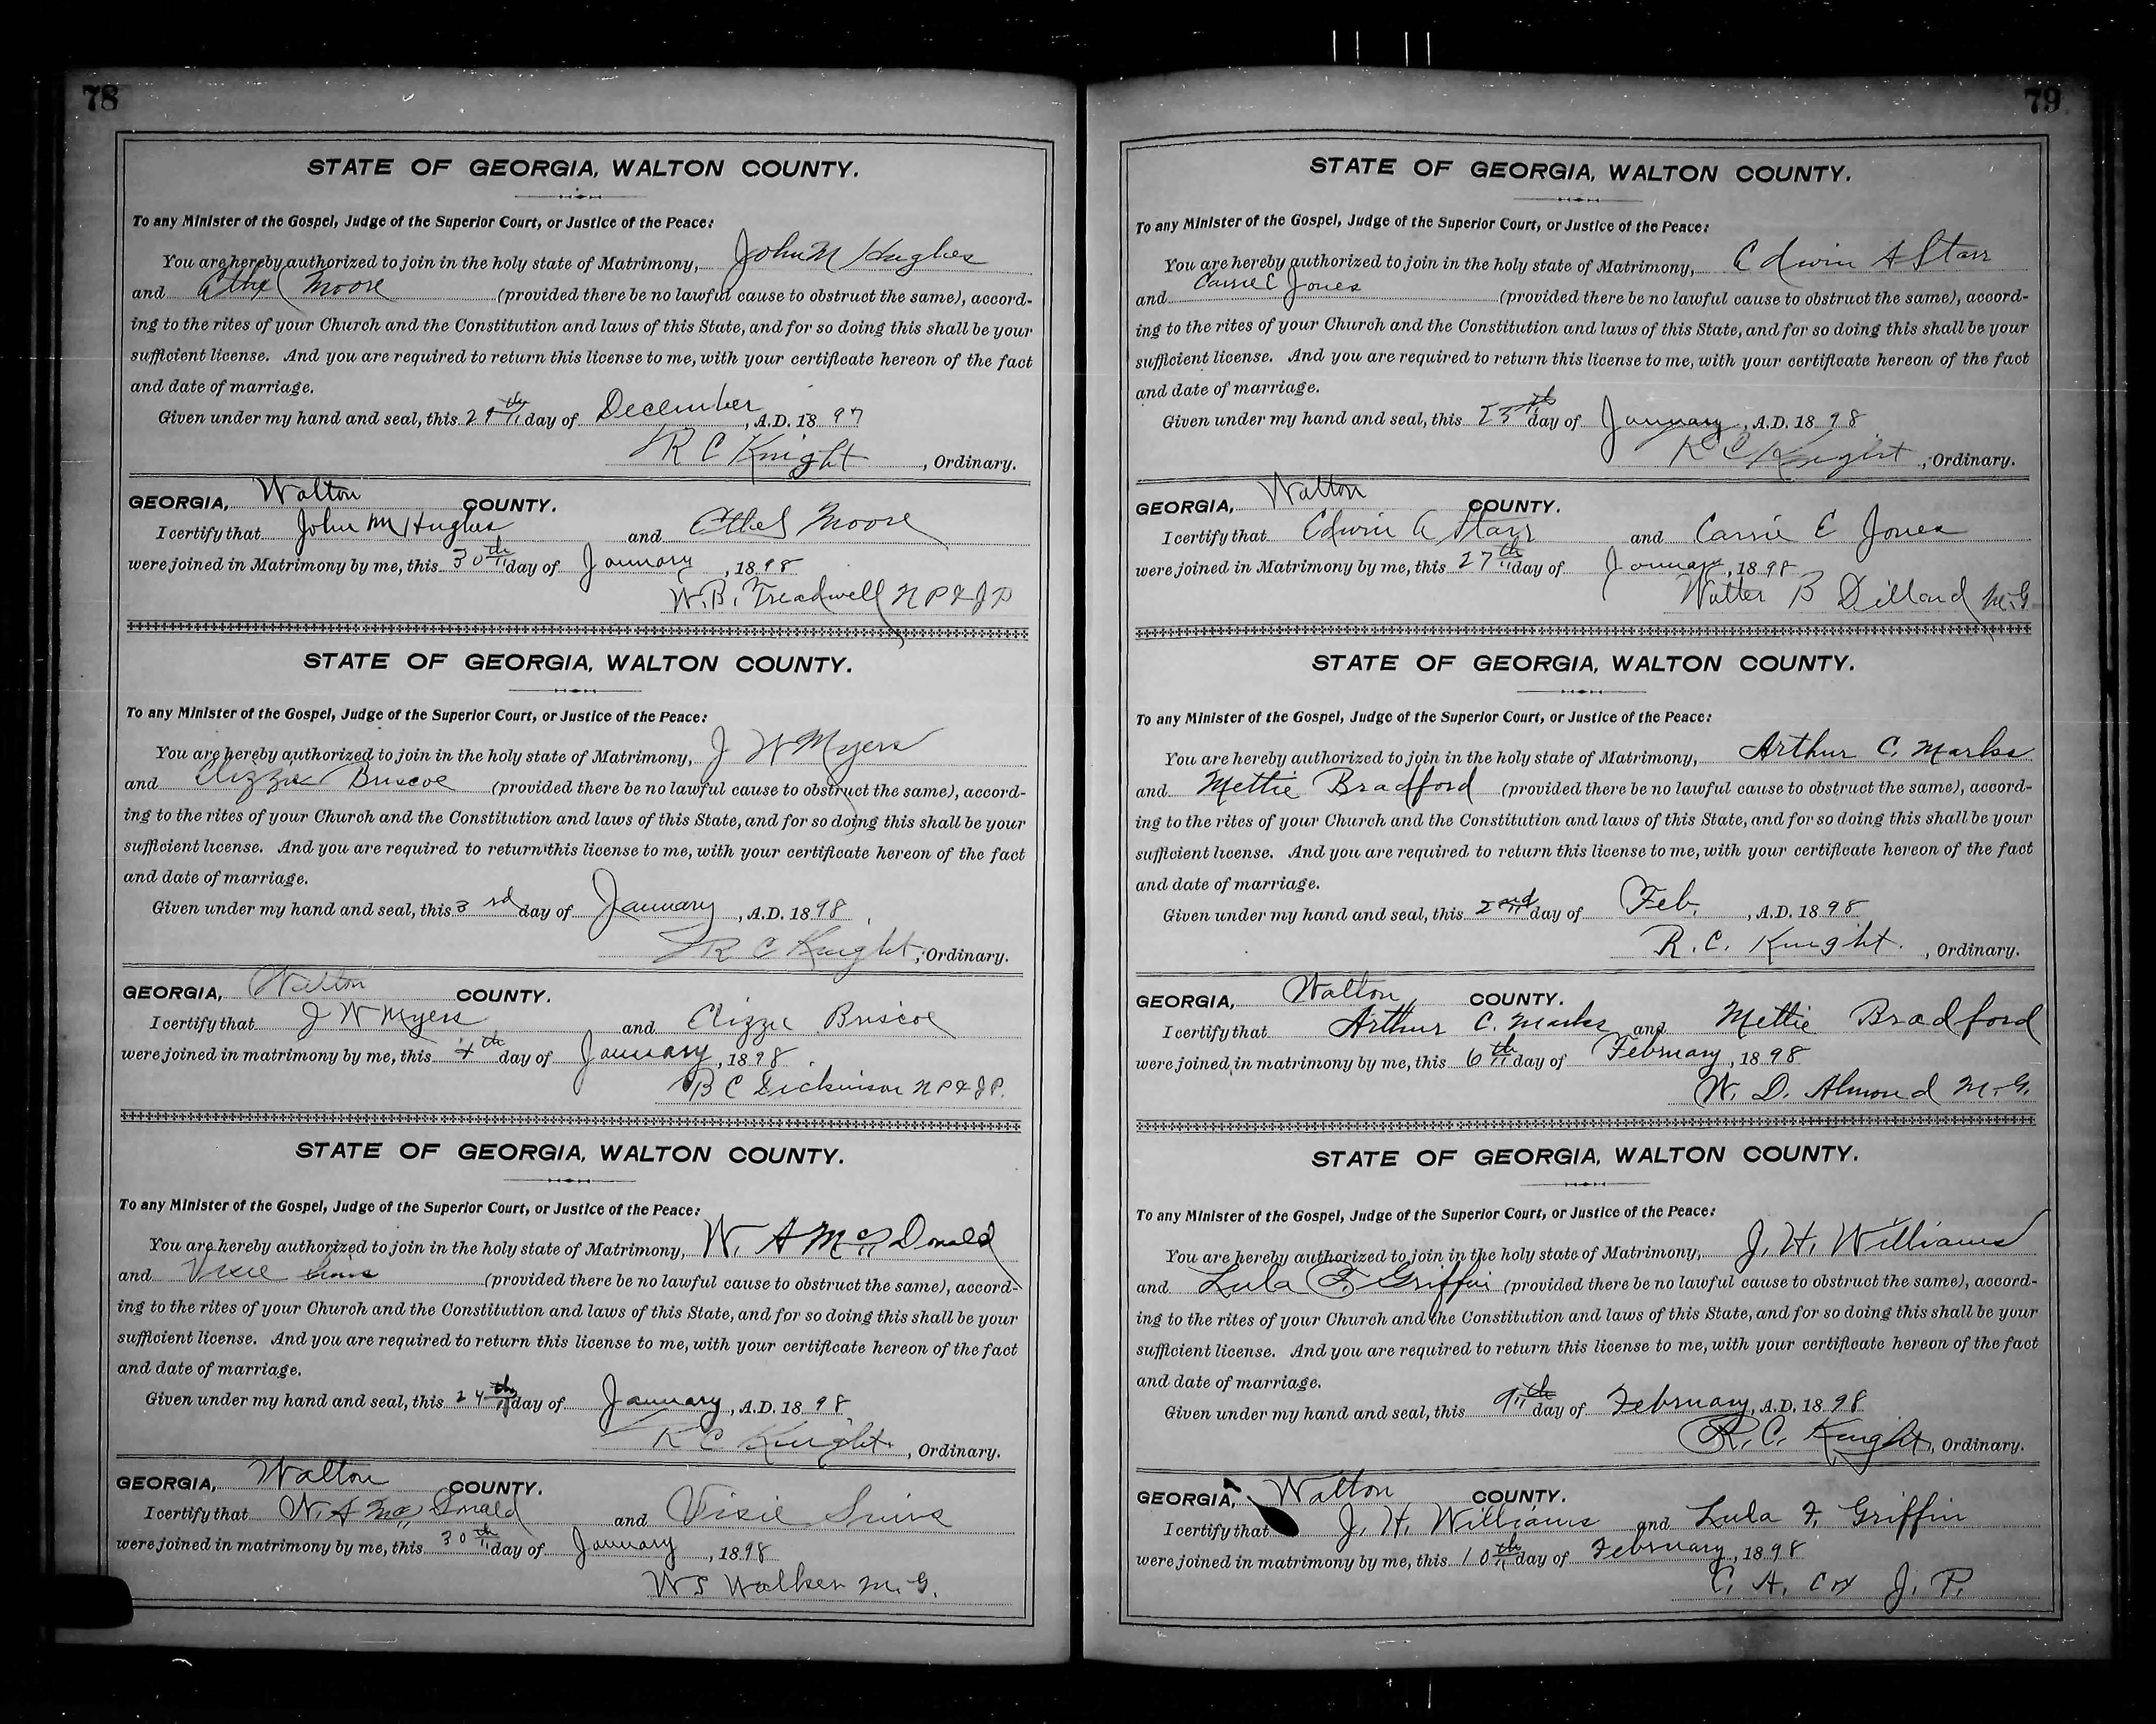 78
STATE OF GEORGIA, WALTON COUNTY.
To any Minister of the Gospel, Judge of the Superior Court, or Justice of the Peace:
You are hereby authorized to join in the holy state of Matrimony, John M Hughes
and Ethel Moore (provided there be no lawful cause to obstruct the same), accord-
ing to the rites of your Church and the Constitution and laws of this State, and for so doing this shall be your
sufficient license. And you are required to return this license to me, with your certificate hereon of the fact
and date of marriage.
Given under my hand and seal, this 29th day of December, A.D. 1897
R C Knight, Ordinary.
GEORGIA, Walton COUNTY.
I certify that John M Hughes and Ethel Moore
were joined in Matrimony by me, this 30th day of January, 1898
W. B. Treadwell N P & J P
STATE OF GEORGIA, WALTON COUNTY.
To any Minister of the Gospel, Judge of the Superior Court, or Justice of the Peace:
You are hereby authorized to join in the holy state of Matrimony, J W Myers
and Lizzie Briscoe (provided there be no lawful cause to obstruct the same), accord-
ing to the rites of your Church and the Constitution and laws of this State, and for so doing this shall be your
sufficient license. And you are required to return this license to me, with your certificate hereon of the fact
and date of marriage.
Given under my hand and seal, this 3rd day of January, A.D. 1898
R C Knight, Ordinary.
GEORGIA, Walton COUNTY.
I certify that J W Myers and Lizzie Briscoe
were joined in matrimony by me, this 4th day of January, 1898
B C Dickinson N P & J P.
STATE OF GEORGIA, WALTON COUNTY.
To any Minister of the Gospel, Judge of the Superior Court, or Justice of the Peace:
You are hereby authorized to join in the holy state of Matrimony, W. A McDonald
and Vixie Sims (provided there be no lawful cause to obstruct the same), accord-
ing to the rites of your Church and the Constitution and laws of this State, and for so doing this shall be your
sufficient license. And you are required to return this license to me, with your certificate hereon of the fact
and date of marriage.
Given under my hand and seal, this 24th day of January, A.D. 1898
R C Knight, Ordinary.
GEORGIA, Walton COUNTY.
I certify that W. A McDonald and Vixie Sims
were joined in matrimony by me, this 30th day of January, 1898
W S Walker M. G.
79
STATE OF GEORGIA, WALTON COUNTY.
To any Minister of the Gospel, Judge of the Superior Court, or Justice of the Peace:
You are hereby authorized to join in the holy state of Matrimony, Edwin A Starr
and Carrie E Jones (provided there be no lawful cause to obstruct the same), accord-
ing to the rites of your Church and the Constitution and laws of this State, and for so doing this shall be your
sufficient license. And you are required to return this license to me, with your certificate hereon of the fact
and date of marriage.
Given under my hand and seal, this 25th day of January, A.D. 1898
R C Knight, Ordinary.
GEORGIA, Walton COUNTY.
I certify that Edwin A Starr and Carrie E Jones
were joined in Matrimony by me, this 27th day of January, 1898
Walter B Dillard M. G
STATE OF GEORGIA, WALTON COUNTY.
To any Minister of the Gospel, Judge of the Superior Court, or Justice of the Peace:
You are hereby authorized to join in the holy state of Matrimony, Arthur C. Marks
and Mettie Bradford (provided there be no lawful cause to obstruct the same), accord-
ing to the rites of your Church and the Constitution and laws of this State, and for so doing this shall be your
sufficient license. And you are required to return this license to me, with your certificate hereon of the fact
and date of marriage.
Given under my hand and seal, this 2nd day of Feb., A.D. 1898
R. C. Knight., Ordinary.
GEORGIA, Walton COUNTY.
I certify that Arthur C. Marks and Mettie Bradford
were joined in matrimony by me, this 6th day of February, 1898
W. D. Almond M. G.
STATE OF GEORGIA, WALTON COUNTY.
To any Minister of the Gospel, Judge of the Superior Court, or Justice of the Peace:
You are hereby authorized to join in the holy state of Matrimony, J. H. Williams
and Lula F. Griffin (provided there be no lawful cause to obstruct the same), accord-
ing to the rites of your Church and the Constitution and laws of this State, and for so doing this shall be your
sufficient license. And you are required to return this license to me, with your certificate hereon of the fact
and date of marriage.
Given under my hand and seal, this 9th day of February, A.D. 1898
R. C. Knight, Ordinary.
GEORGIA, Walton COUNTY.
I certify that J. H. Williams and Lula F. Griffin
were joined in matrimony by me, this 10th day of February, 1898
C. A. Cox J. P.